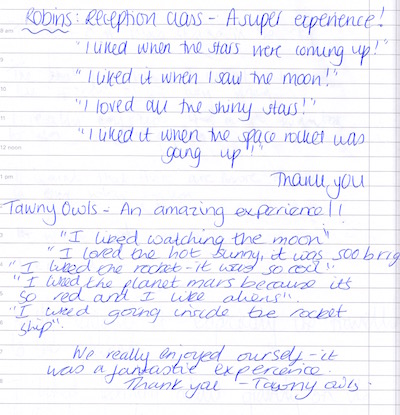 Robins: Reception class - A super experience!
8 am
"I liked when the stars were coming up!"
"I liked it when I saw the moon!"
10
"I loved all the shiny stars!"
11
"I liked it when the space rocket was
12 noon
going up!"
1 pm
Thank you
Tawny Owls - An amazing experience!!
"I liked watching the moon"
"I loved the hot sunny, it was soo brig
"I liked the rocket - it was so cool"
"I liked the planet mars because it's
so red and I like aliens".
"I liked going inside the rocket
ship".
We really enjoyed ourself - it
was a fantastic experience.
Thank you - Tawny owls.